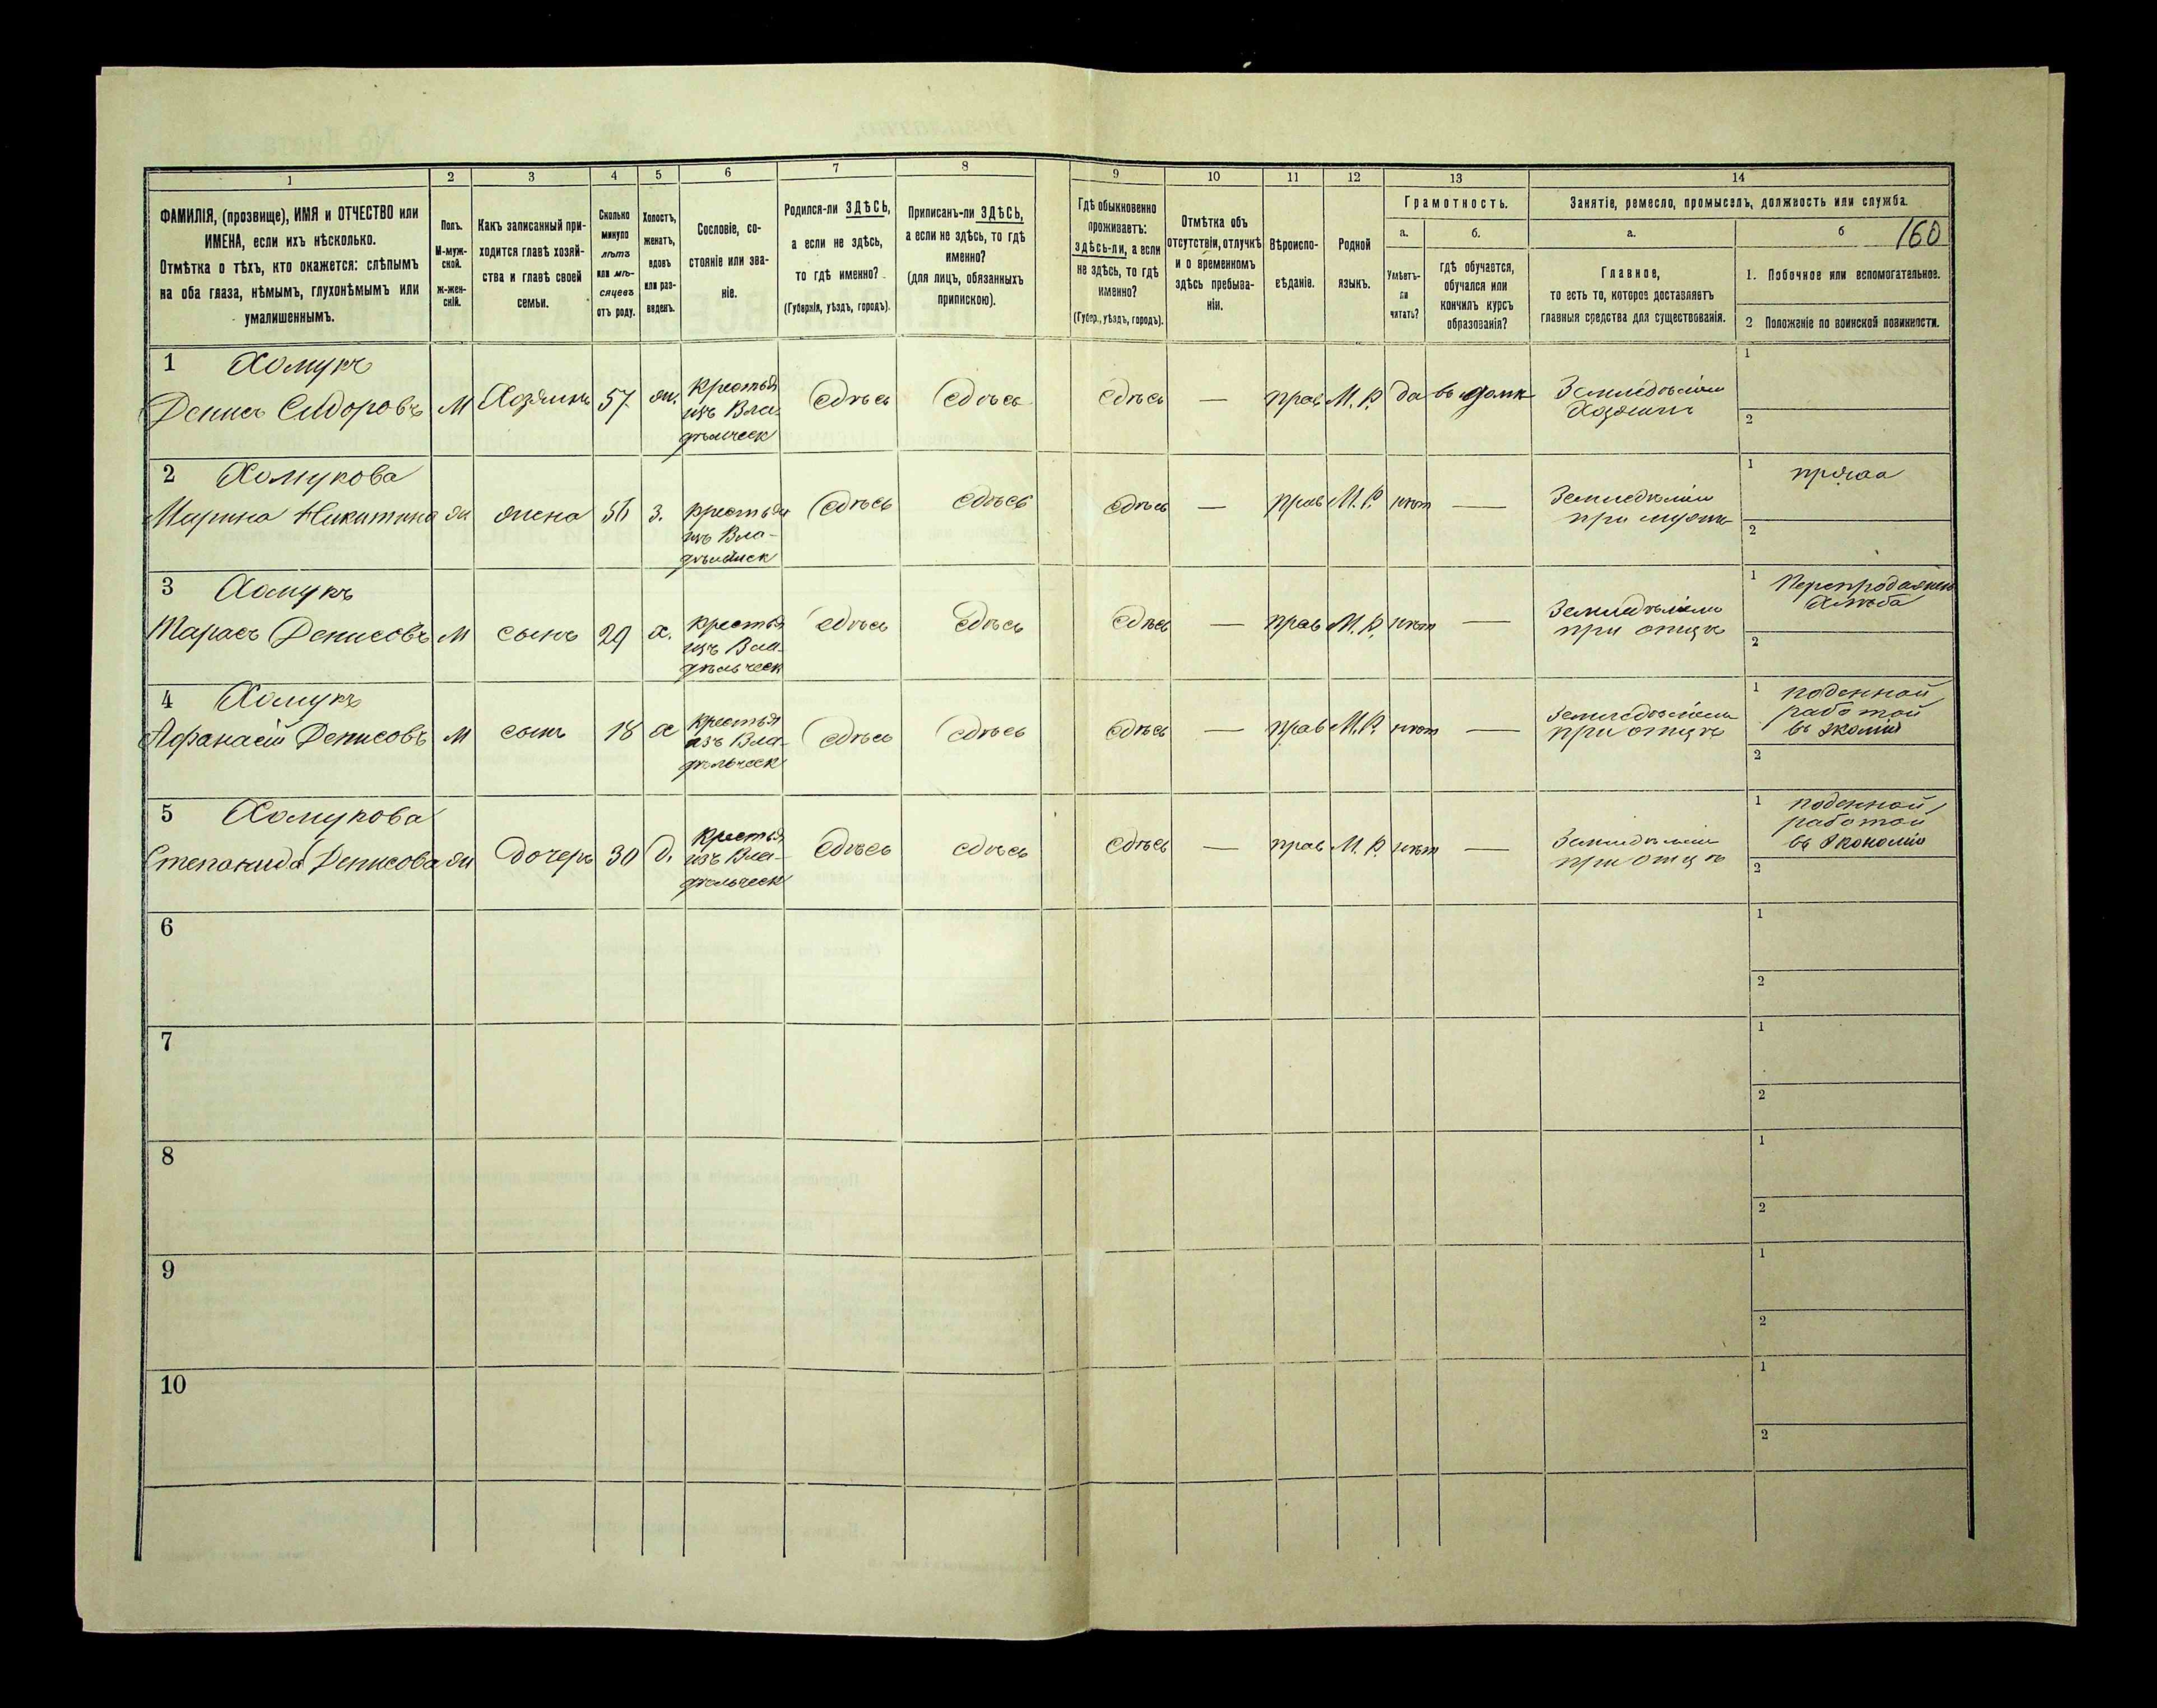 1 2 3 4 5 6 7 8 9 10 11 12 13 14
ФАМИЛІЯ, (прозвище), ИМЯ и ОТЧЕСТВО или
ИМЕНА, если ихъ нѣсколько.
Отмѣтка о тѣхъ, кто окажется: слѣпымъ
на оба глаза, нѣмымъ, глухонѣмымъ или
умалишеннымъ.
Полъ.
М-муж-
ской.
ж-жен-
скій.
Какъ записанный при-
ходится главѣ хозяй-
ства и главѣ своей
семьи.
Сколько
минуло
лѣтъ
или мѣ-
сяцевъ
отъ роду.
Холостъ,
женатъ,
вдовъ
или раз-
веденъ.
Сословіе, со-
стояніе или зва-
ніе.
Родился-ли ЗДѢСЬ,
а если не здѣсь,
то гдѣ именно?
(Губернія, уѣздъ, городъ).
Приписанъ-ли ЗДѢСЬ,
а если не здѣсь, то гдѣ
именно?
(для лицъ, обязанныхъ
припискою).
Гдѣ обыкновенно
проживаетъ:
здѣсь-ли, а если
не здѣсь, то гдѣ
именно?
(Губер., уѣздъ, городъ).
Отмѣтка объ
отсутствіи, отлучкѣ
и о временномъ
здѣсь пребыва-
ніи.
Вѣроиспо-
вѣданіе.
Родной
языкъ.
Грамотность.
а.
Умѣетъ-
ли
читать?
б.
гдѣ обучается,
обучался или
кончилъ курсъ
образованія?
Занятіе, ремесло, промыселъ, должность или служба.
а.
Главное,
то есть то, которое доставляетъ
главныя средства для существованія.
б 160
1. Побочное или вспомогательное.
2 Положеніе по воинской повинности.
1 Хомукъ
Денисъ Сидоровъ М Хозяинъ 57 ж. Крестья
изъ Вла-
дѣльческ
Сдѣсь Сдѣсь Сдѣсь — прав М. Р. да въ домѣ Земледѣліе
Хозяинъ
1
2
2 Хомукова
Марина Никитина ж жена 56 з. Крестья
изъ Вла-
дѣльческ
Сдѣсь Сдѣсь Сдѣсь — прав М. Р. нѣт — Земледѣліе
при мужѣ
1 пряжа
2
3 Хомукъ
Тарасъ Денисовъ М сынъ 29 х. Крестья
изъ Вла-
дѣльческ
Сдѣсь Сдѣсь Сдѣсь — прав М. Р. нѣт — Земледѣліе
при отцѣ
1 Перепродажею
хлѣба
2
4 Хомукъ
Афанасій Денисовъ М сынъ 18 х Крестья
изъ Вла-
дѣльческ
Сдѣсь Сдѣсь Сдѣсь — прав М. Р. нѣт — Земледѣліе
при отцѣ
1 поденной
работой
въ экомій
2
5 Хомукова
Степанида Денисова ж Дочерь 30 д. Крестья
изъ Вла-
дѣльческ
Сдѣсь Сдѣсь Сдѣсь — прав М. Р. нѣт — Земледѣліе
при отцѣ
1 поденной
работой
въ экономію
2
6 1
2
7 1
2
8 1
2
9 1
2
10 1
2